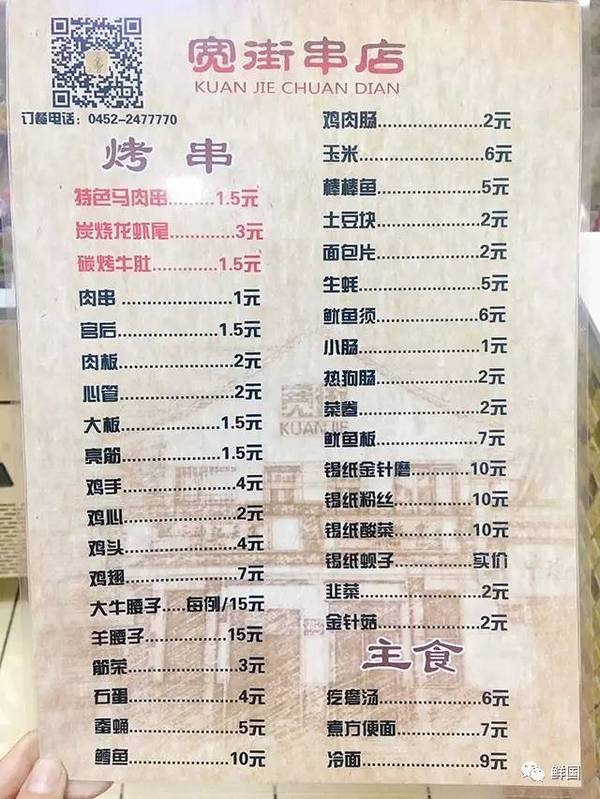 宽街串店
KUAN JIE CHUAN DIAN
订餐电话：0452-2477770
烤 串
特色马肉串.........1.5元
炭烧龙虾尾.............3元
碳烤牛肚.............1.5元
肉串......................1元
宫后....................1.5元
肉板......................2元
心管......................2元
大板....................1.5元
亮筋....................1.5元
鸡手......................4元
鸡心......................2元
鸡头......................4元
鸡翅......................7元
大牛腰子....每例/15元
羊腰子.................15元
筋菜......................3元
石蛋......................4元
蚕蛹......................5元
鳕鱼....................10元
鸡肉肠...................2元
玉米......................6元
棒棒鱼...................5元
土豆块...................2元
面包片...................2元
生蚝......................5元
鱿鱼须...................6元
小肠......................1元
热狗肠...................2元
菜卷......................2元
鱿鱼板...................7元
锡纸金针磨..........10元
锡纸粉丝.............10元
锡纸酸菜.............10元
锡纸蚬子.............实价
韭菜......................2元
金针菇...................2元
宽街
KUANJIE
主食
疙瘩汤...................6元
煮方便面................7元
冷面......................9元
鲜国